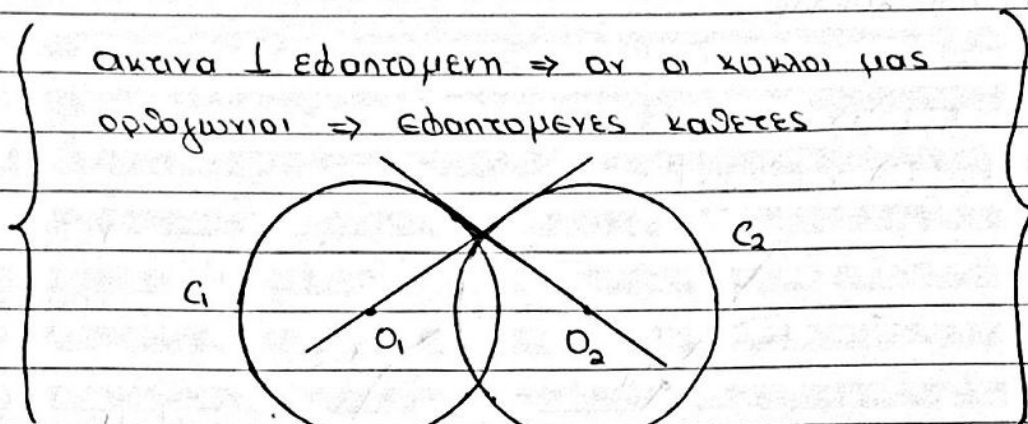 ακτινα ⊥ εφαπτομενη ⇒ αν οι κυκλοι μας
ορθογωνιοι ⇒ εφαπτομενες καθετες
C₁
C₂
O₁
O₂